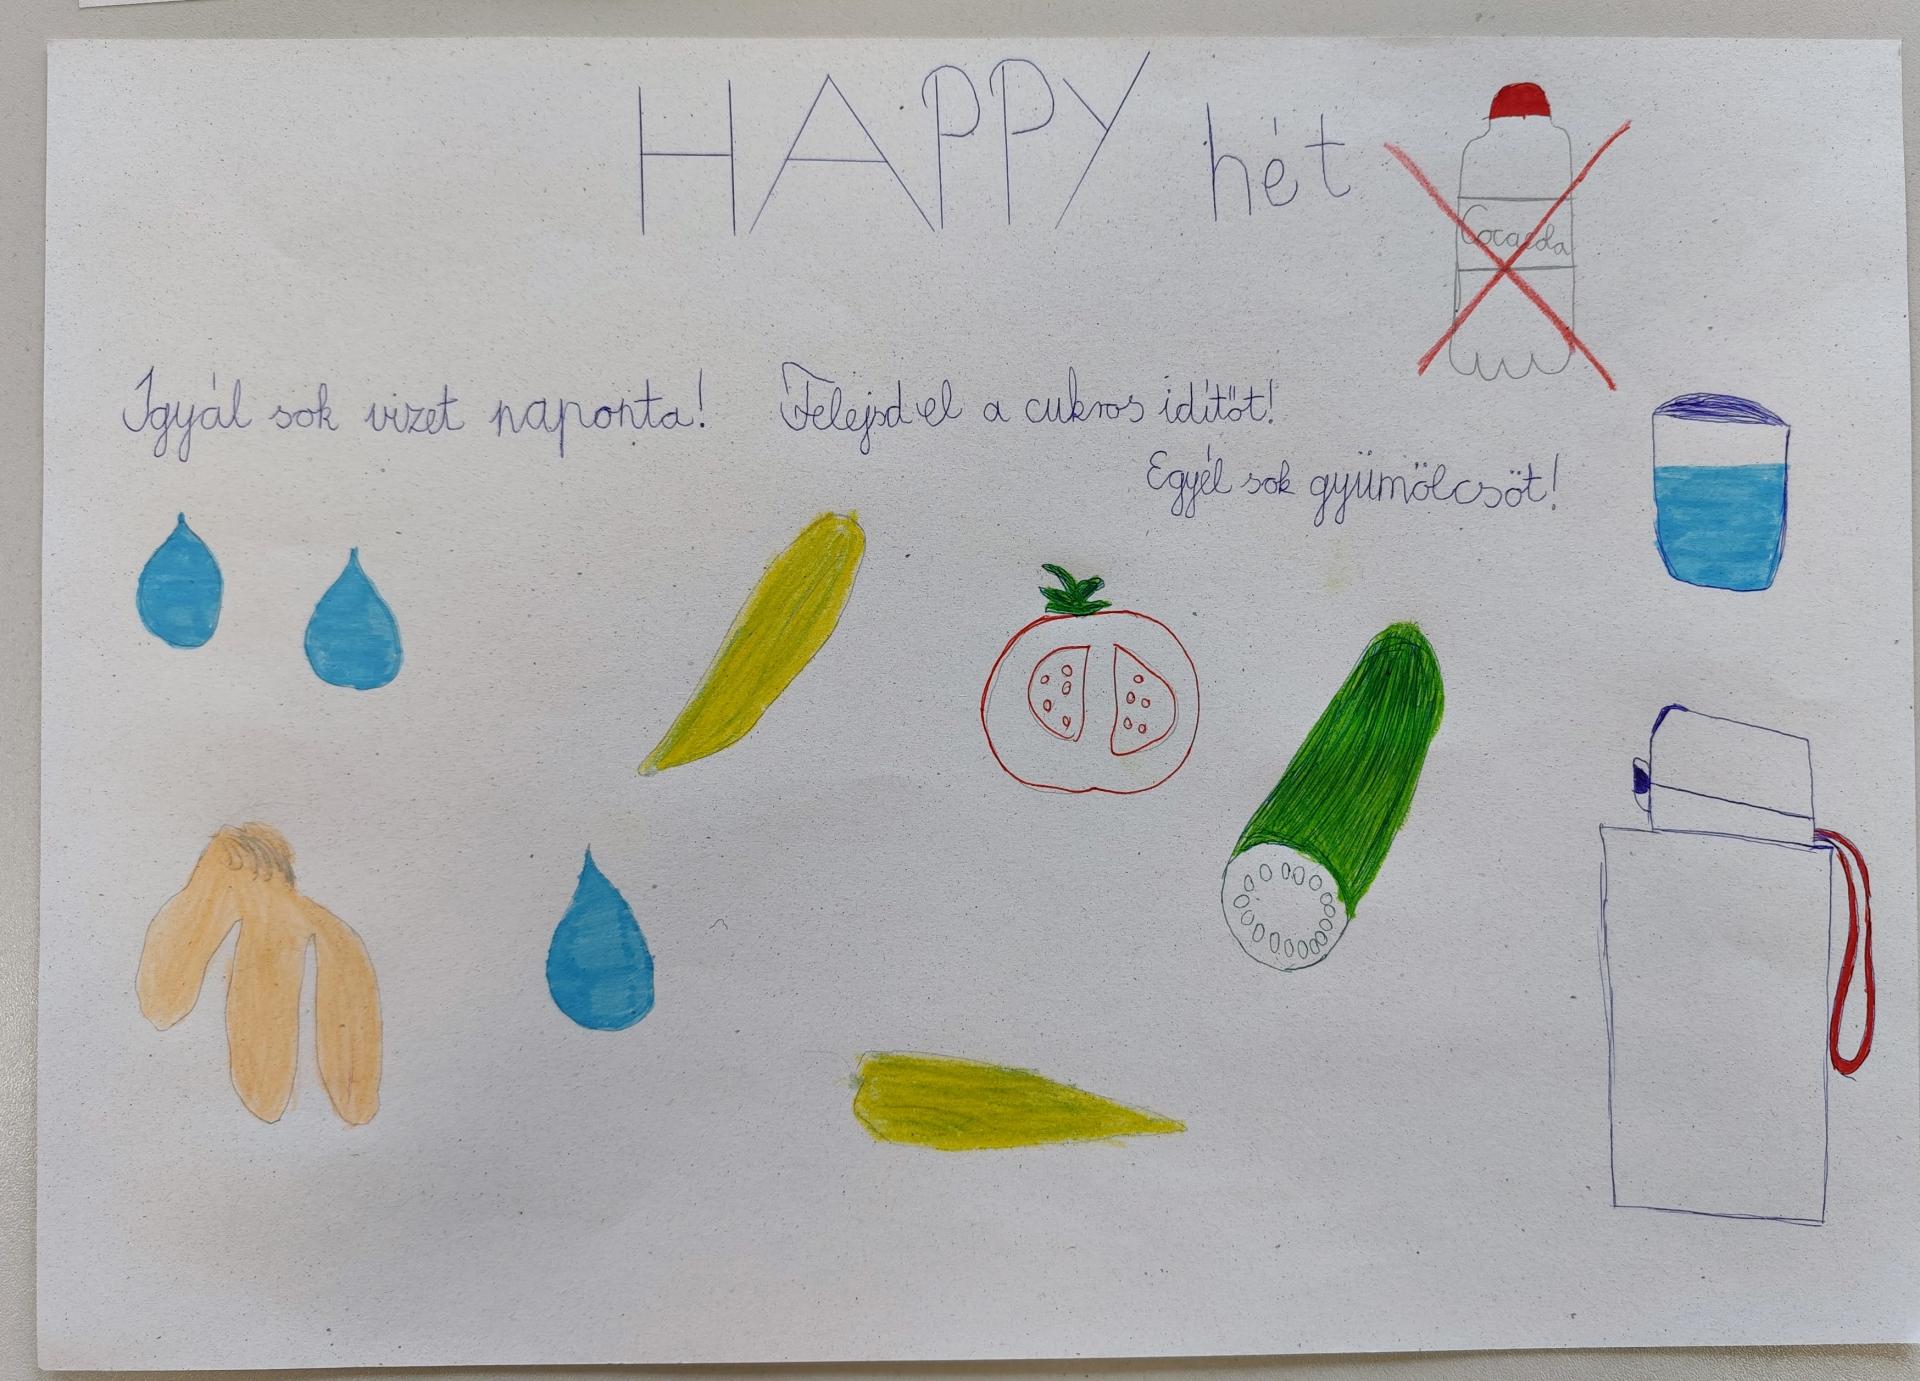 HAPPY hét
Cocacola
Igyál sok vizet naponta! Felejsd el a cukros idítőt!
Egyél sok gyümölcsöt!